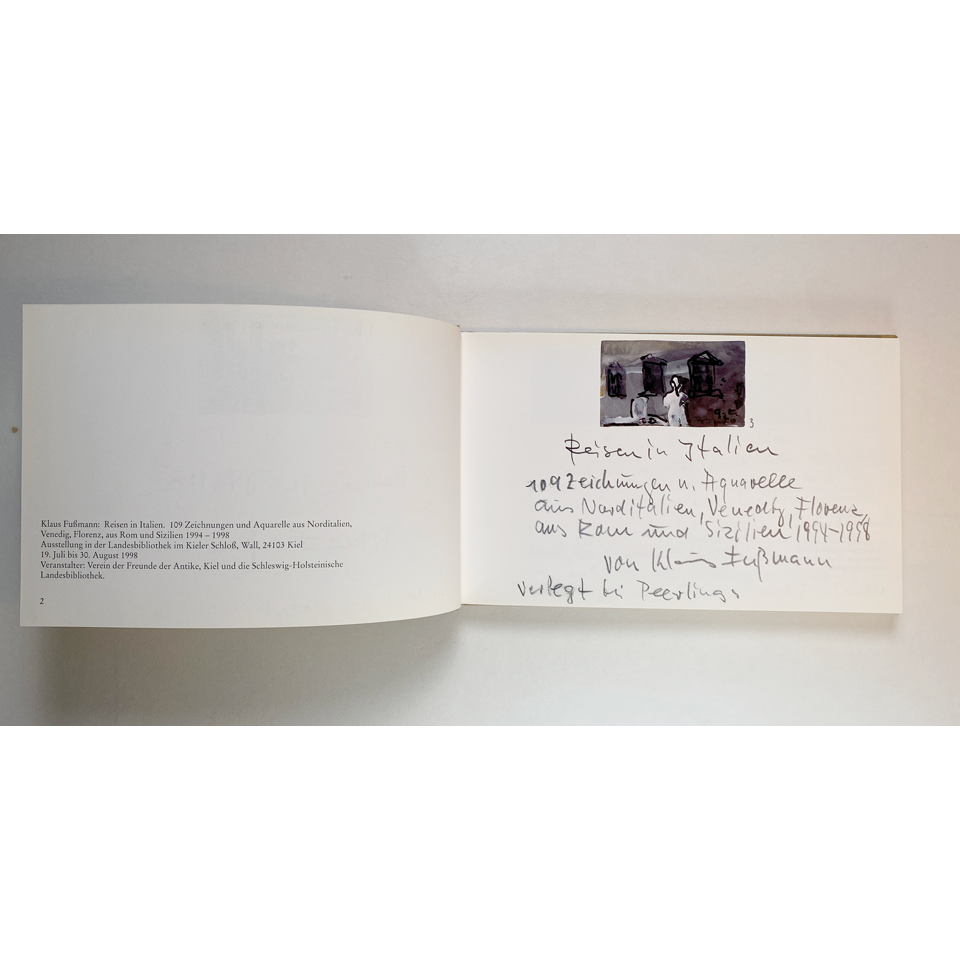 Klaus Fußmann: Reisen in Italien. 109 Zeichnungen und Aquarelle aus Norditalien,
Venedig, Florenz, aus Rom und Sizilien 1994 – 1998
Ausstellung in der Landesbibliothek im Kieler Schloß, Wall, 24103 Kiel
19. Juli bis 30. August 1998
Veranstalter: Verein der Freunde der Antike, Kiel und die Schleswig-Holsteinische
Landesbibliothek.
2
3
Reisen in Italien
109 Zeichnungen u. Aquarelle
aus Norditalien, Venedig, Florenz,
aus Rom und Sizilien 1994-1998
von Klaus Fußmann
verlegt bei Peerlings